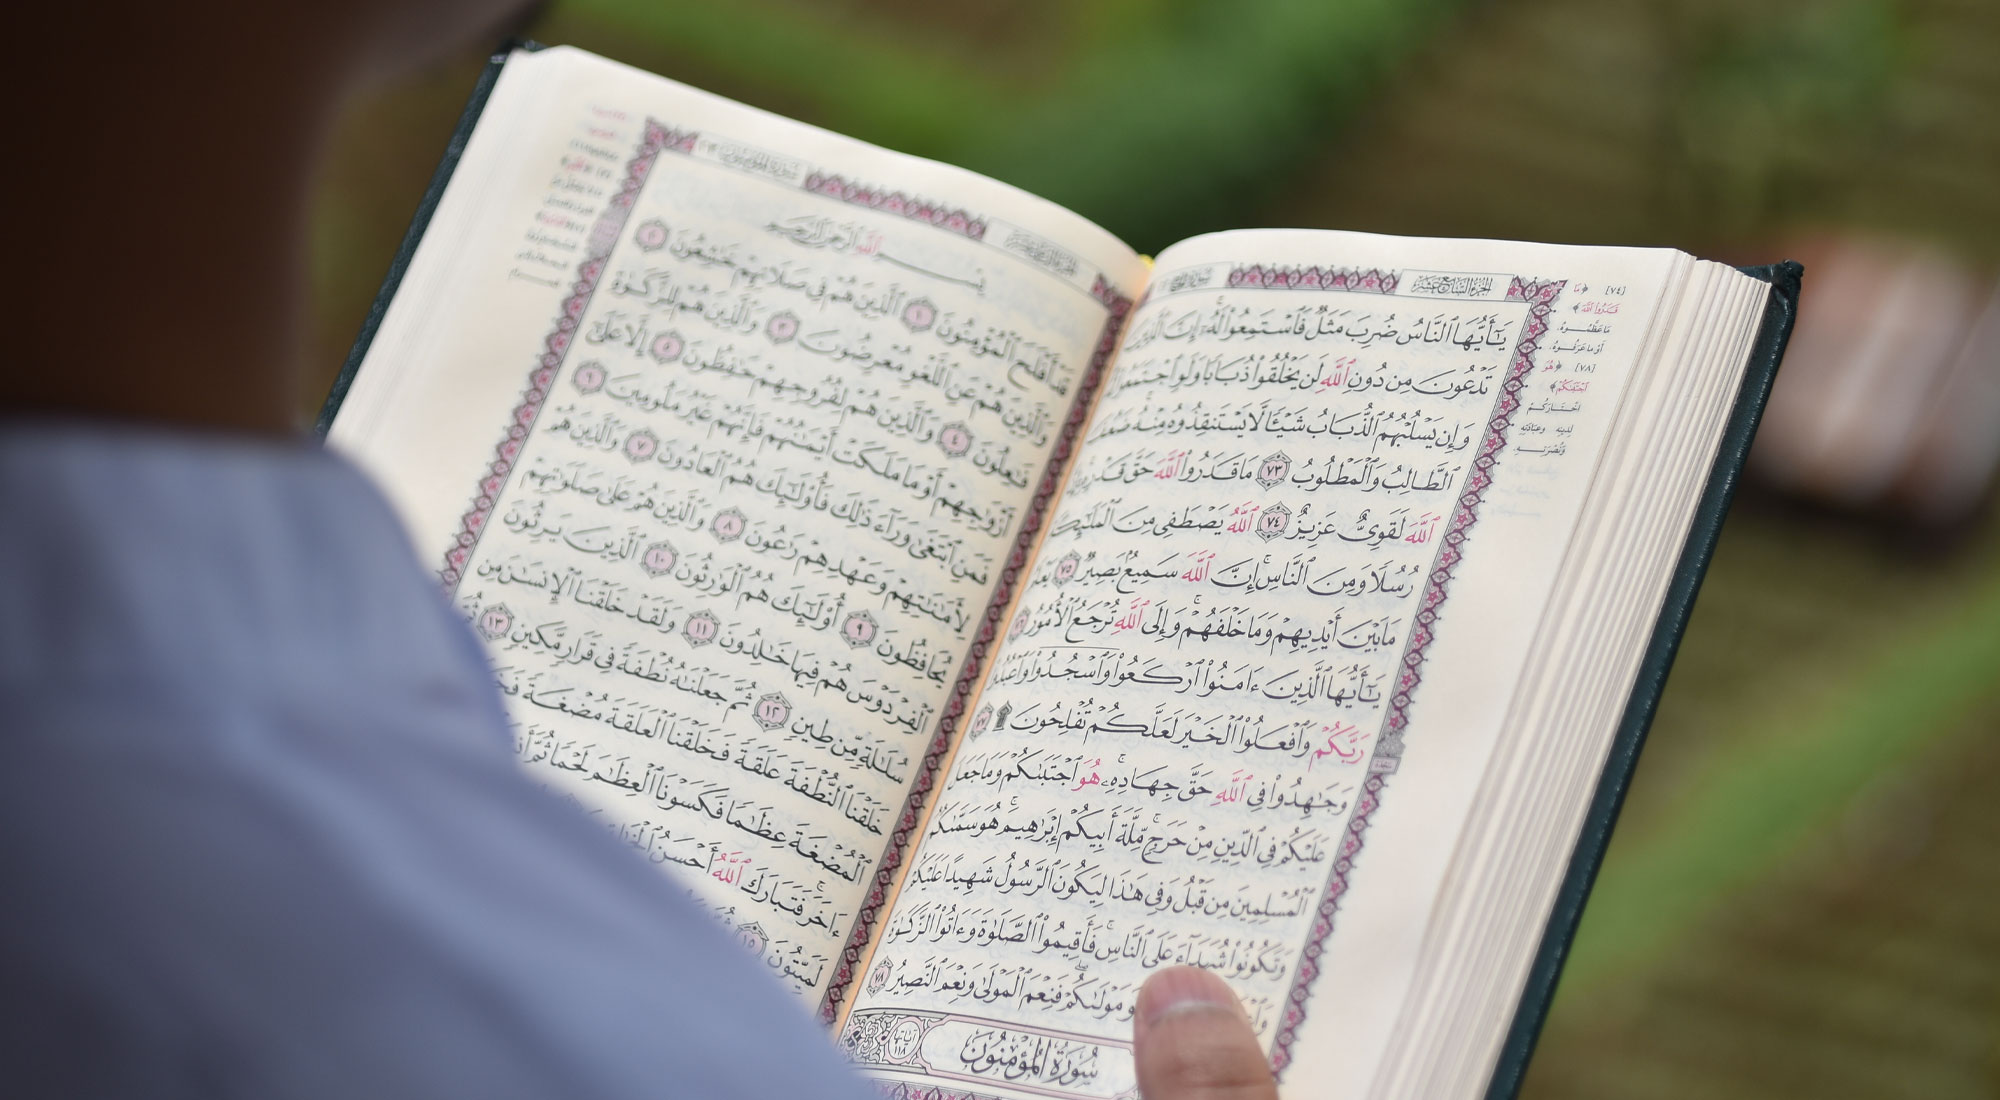 الجزء السابع عشر
يَٰٓأَيُّهَا ٱلنَّاسُ ضُرِبَ مَثَلٌ فَٱسْتَمِعُوا۟ لَهُۥٓ إِنَّ ٱلَّذِينَ
تَدْعُونَ مِن دُونِ ٱللَّهِ لَن يَخْلُقُوا۟ ذُبَابًا وَلَوِ ٱجْتَمَعُوا۟
وَإِن يَسْلُبْهُمُ ٱلذُّبَابُ شَيْـًٔا لَّا يَسْتَنقِذُوهُ مِنْهُ ضَعُفَ
ٱلطَّالِبُ وَٱلْمَطْلُوبُ ٧٣ مَا قَدَرُوا۟ ٱللَّهَ حَقَّ
ٱللَّهَ لَقَوِىٌّ عَزِيزٌ ٧٤ ٱللَّهُ يَصْطَفِى مِنَ
رُسُلًا وَمِنَ ٱلنَّاسِ إِنَّ ٱللَّهَ سَمِيعٌۢ بَصِيرٌ ٧٥
مَا بَيْنَ أَيْدِيهِمْ وَمَا خَلْفَهُمْ وَإِلَى ٱللَّهِ تُرْجَعُ ٱلْأُمُورُ ٧٦
يَٰٓأَيُّهَا ٱلَّذِينَ ءَامَنُوا۟ ٱرْكَعُوا۟ وَٱسْجُدُوا۟ وَٱعْبُدُوا۟
رَبَّكُمْ وَٱفْعَلُوا۟ ٱلْخَيْرَ لَعَلَّكُمْ تُفْلِحُونَ ۩ ٧٧
وَجَٰهِدُوا۟ فِى ٱللَّهِ حَقَّ جِهَادِهِۦ هُوَ ٱجْتَبَىٰكُمْ وَمَا جَعَلَ
عَلَيْكُمْ فِى ٱلدِّينِ مِنْ حَرَجٍ مِّلَّةَ أَبِيكُمْ إِبْرَٰهِيمَ هُوَ سَمَّىٰكُمُ
ٱلْمُسْلِمِينَ مِن قَبْلُ وَفِى هَٰذَا لِيَكُونَ ٱلرَّسُولُ شَهِيدًا عَلَيْكُمْ
وَتَكُونُوا۟ شُهَدَآءَ عَلَى ٱلنَّاسِ فَأَقِيمُوا۟ ٱلصَّلَوٰةَ وَءَاتُوا۟ ٱلزَّكَوٰةَ
مَوْلَىٰكُمْ فَنِعْمَ ٱلْمَوْلَىٰ وَنِعْمَ ٱلنَّصِيرُ ٧٨
سُورَةُ المُؤْمِنُونَ
آياتها ١١٨
[٧٤] ﴿مَا
قَدَرُوا۟ ٱللَّهَ﴾
مَا عَظَّمُوهُ،
أَوْ مَا عَرَفُوهُ.
[٧٨] ﴿هُوَ
ٱجْتَبَىٰكُمْ﴾
اخْتَارَكُمْ
لِدِينِهِ وَعِبَادَتِهِ
وَنُصْرَتِهِ.
بِسْمِ ٱللَّهِ ٱلرَّحْمَٰنِ ٱلرَّحِيمِ
قَدْ أَفْلَحَ ٱلْمُؤْمِنُونَ ١ ٱلَّذِينَ هُمْ فِى صَلَاتِهِمْ خَٰشِعُونَ ٢
وَٱلَّذِينَ هُمْ عَنِ ٱللَّغْوِ مُعْرِضُونَ ٣ وَٱلَّذِينَ هُمْ لِلزَّكَوٰةِ
فَٰعِلُونَ ٤ وَٱلَّذِينَ هُمْ لِفُرُوجِهِمْ حَٰفِظُونَ ٥ إِلَّا عَلَىٰٓ
أَزْوَٰجِهِمْ أَوْ مَا مَلَكَتْ أَيْمَٰنُهُمْ فَإِنَّهُمْ غَيْرُ مَلُومِينَ ٦
فَمَنِ ٱبْتَغَىٰ وَرَآءَ ذَٰلِكَ فَأُو۟لَٰٓئِكَ هُمُ ٱلْعَادُونَ ٧ وَٱلَّذِينَ هُمْ
لِأَمَٰنَٰتِهِمْ وَعَهْدِهِمْ رَٰعُونَ ٨ وَٱلَّذِينَ هُمْ عَلَىٰ صَلَوَٰتِهِمْ
يُحَافِظُونَ ٩ أُو۟لَٰٓئِكَ هُمُ ٱلْوَٰرِثُونَ ١٠ ٱلَّذِينَ يَرِثُونَ
ٱلْفِرْدَوْسَ هُمْ فِيهَا خَٰلِدُونَ ١١ وَلَقَدْ خَلَقْنَا ٱلْإِنسَٰنَ مِن
سُلَٰلَةٍ مِّن طِينٍ ١٢ ثُمَّ جَعَلْنَٰهُ نُطْفَةً فِى قَرَارٍ مَّكِينٍ ١٣
خَلَقْنَا ٱلنُّطْفَةَ عَلَقَةً فَخَلَقْنَا ٱلْعَلَقَةَ مُضْغَةً
ٱلْمُضْغَةَ عِظَٰمًا فَكَسَوْنَا ٱلْعِظَٰمَ لَحْمًا ثُمَّ
ءَاخَرَ فَتَبَارَكَ ٱللَّهُ أَحْسَنُ
لَمَيِّتُونَ ١٥